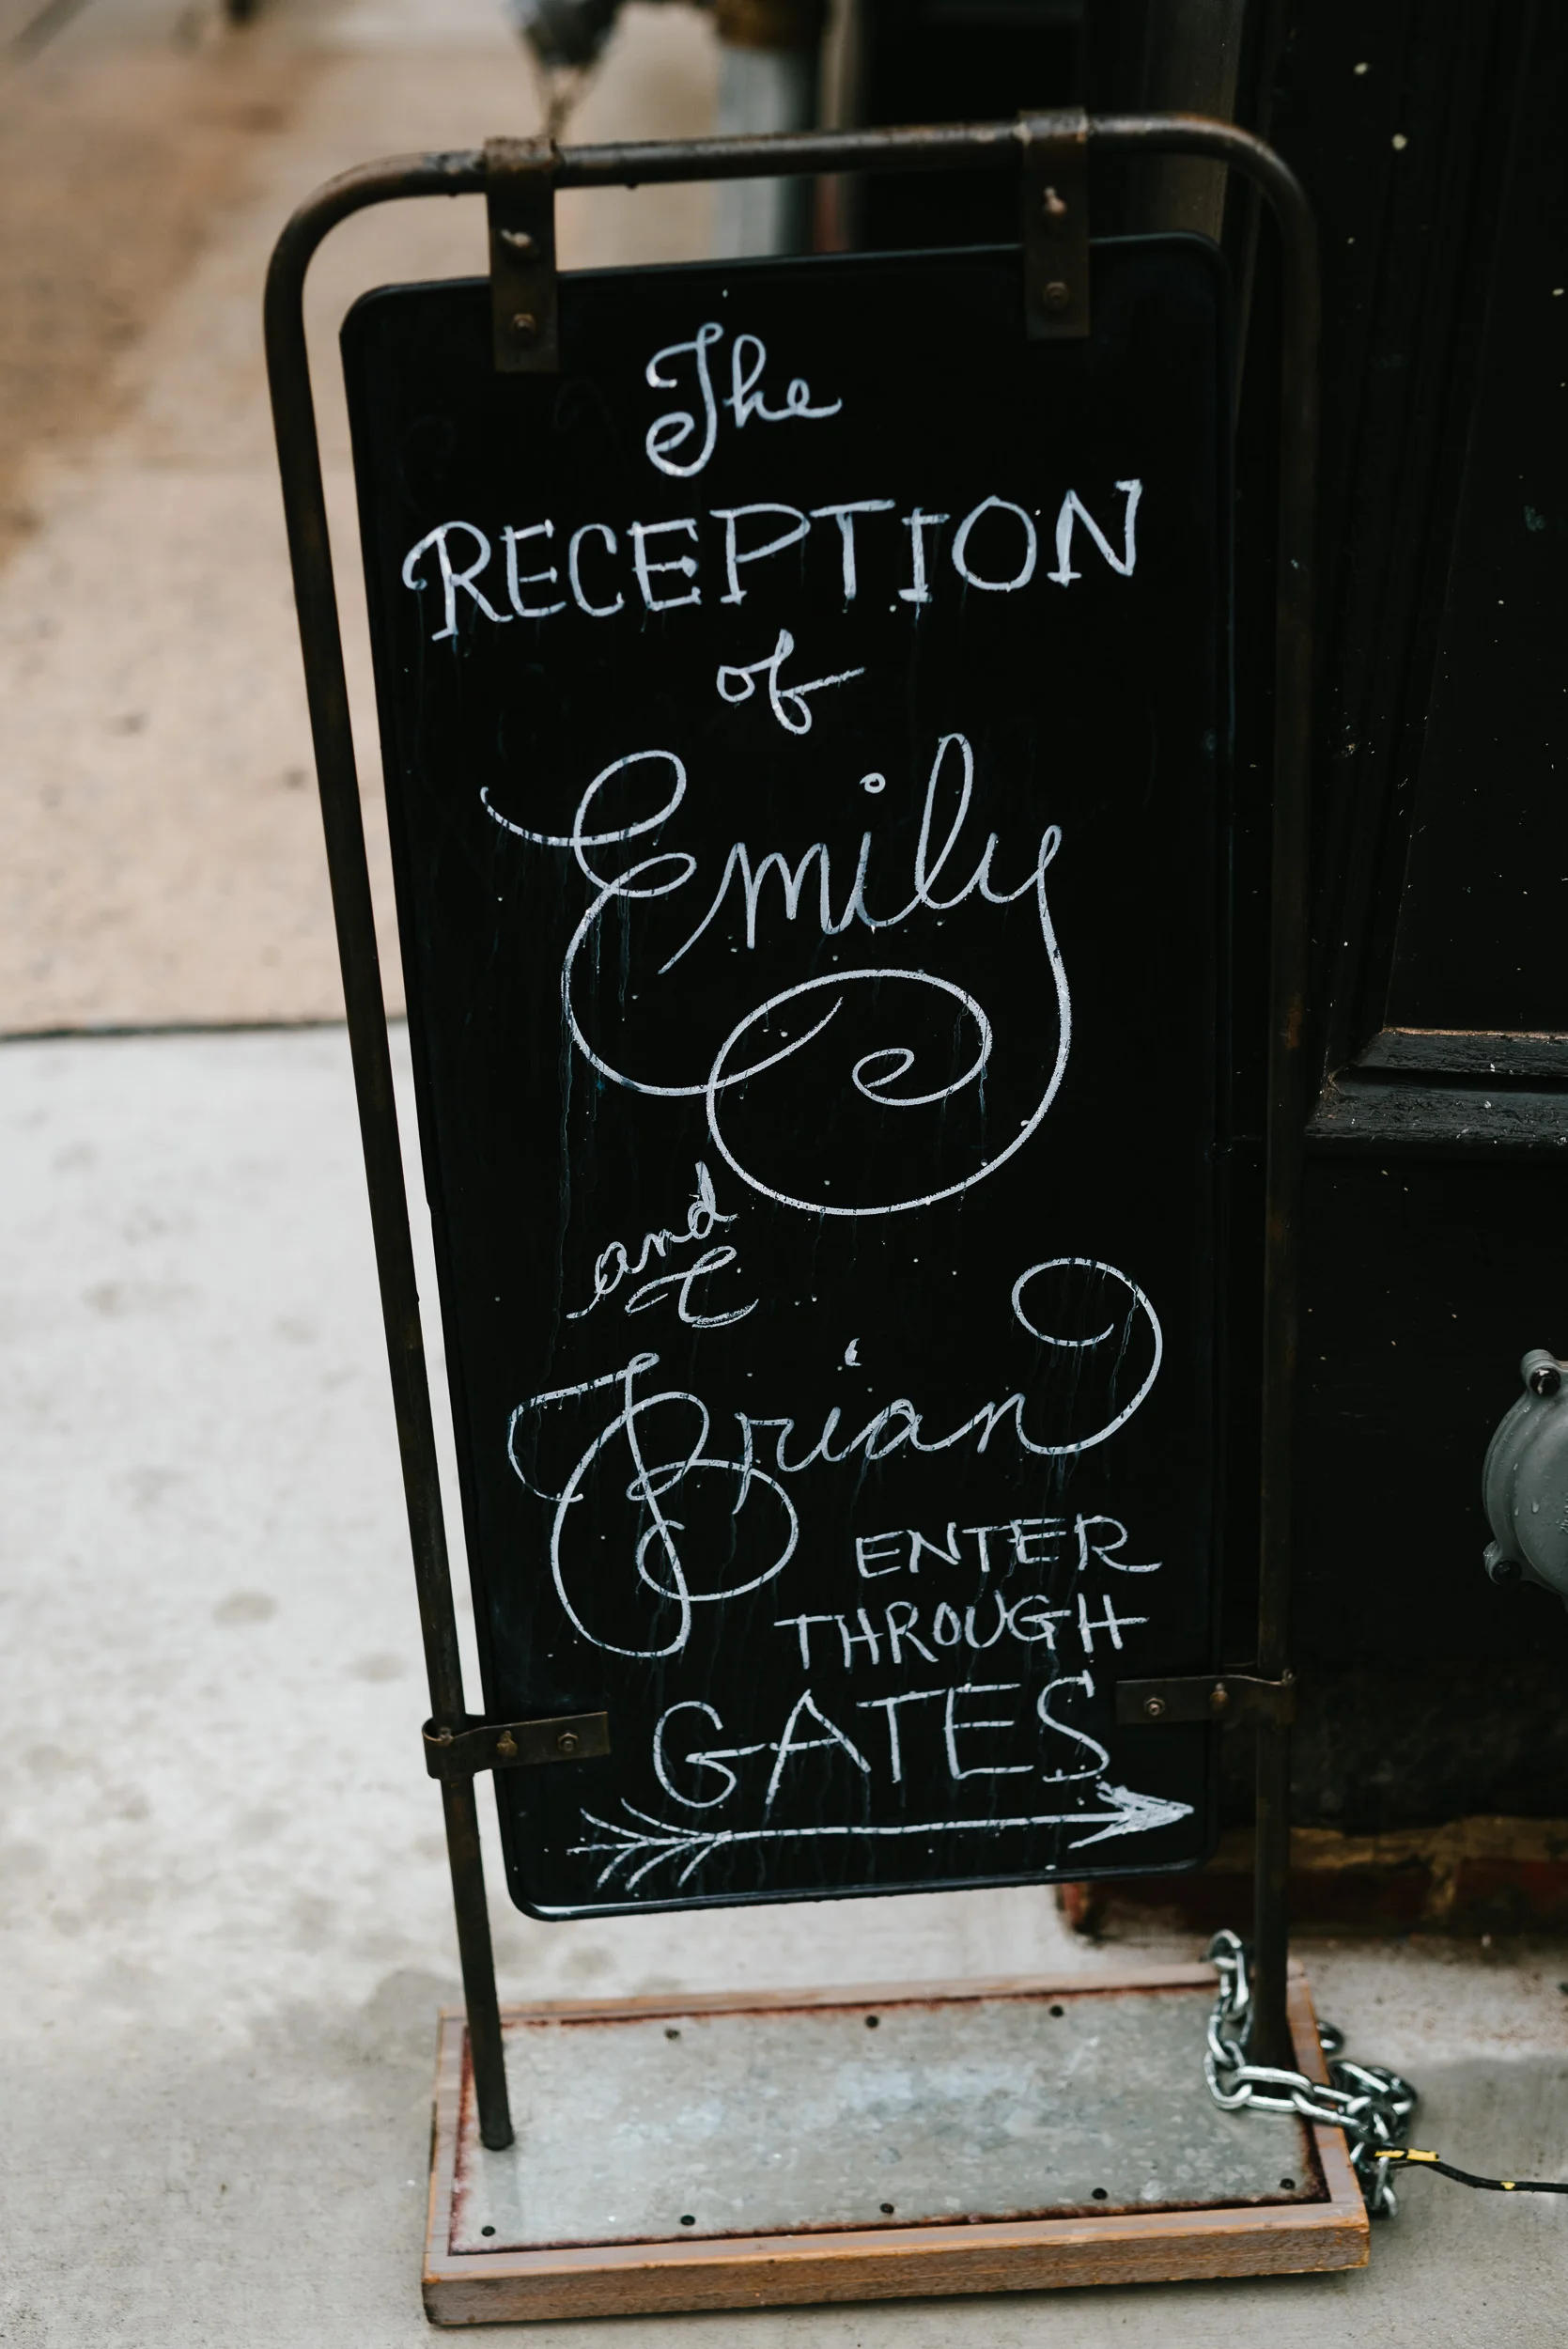 The
RECEPTION
of
Emily
and
Brian
ENTER
THROUGH
GATES